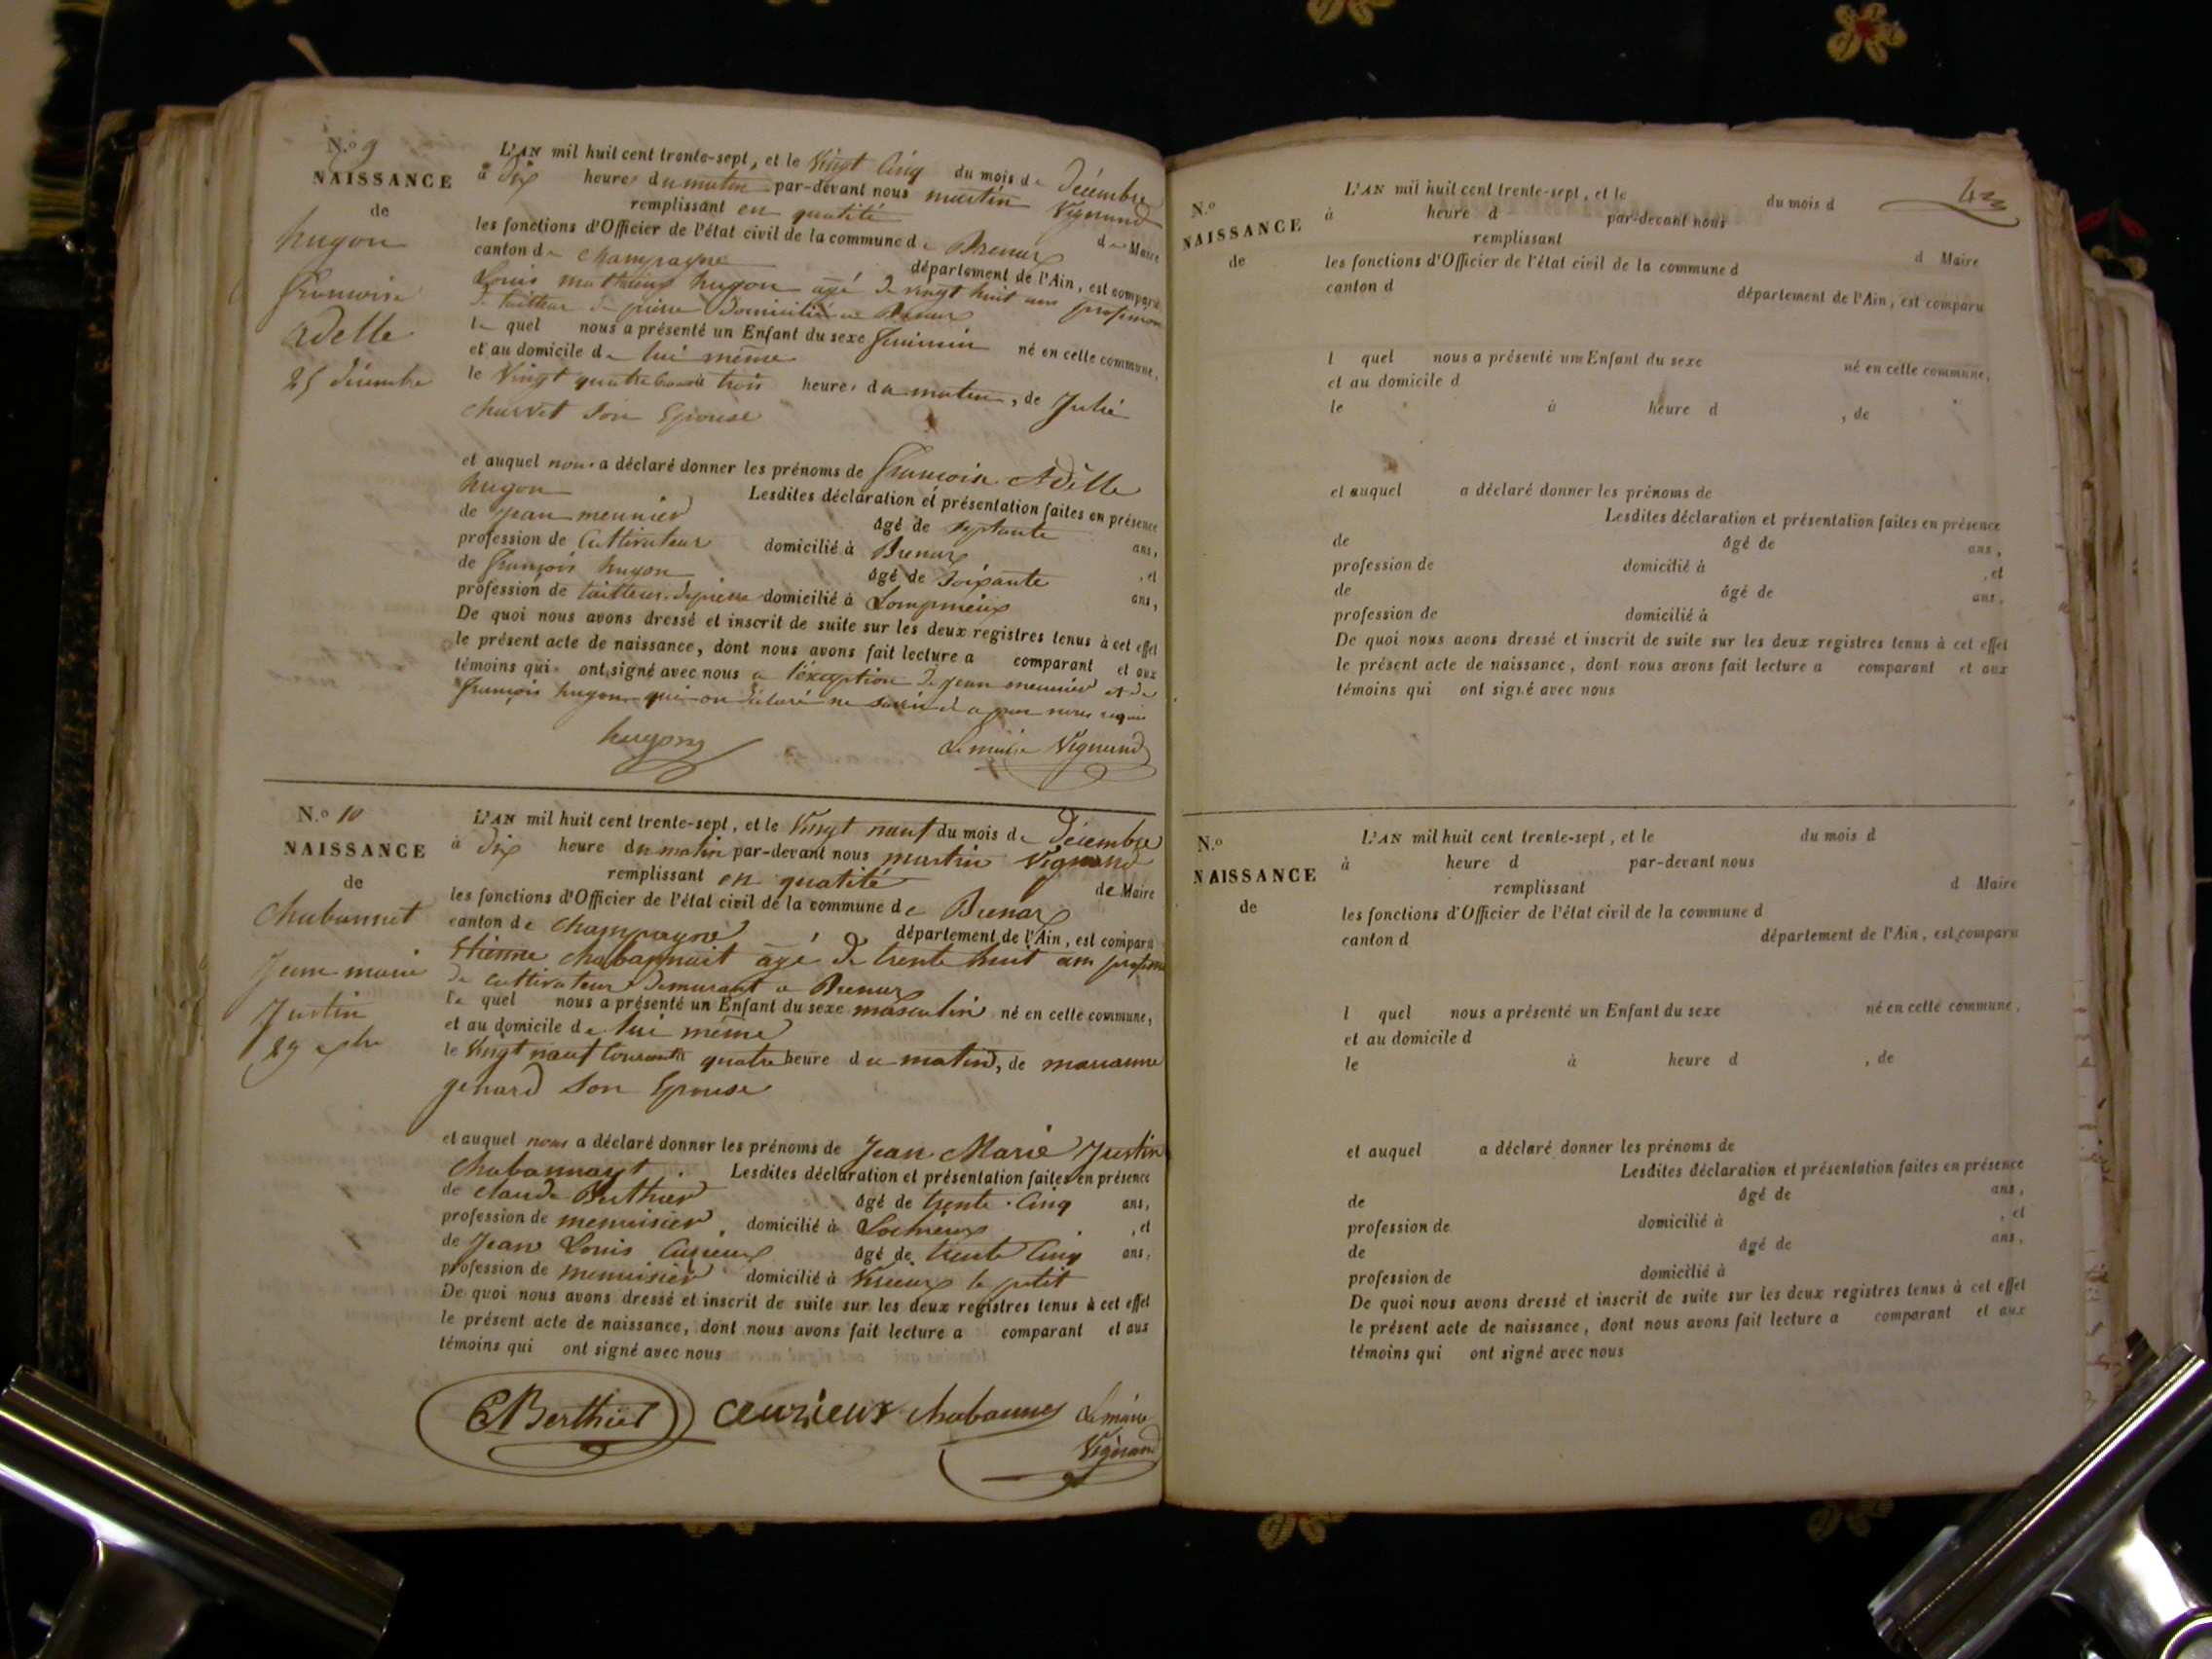 N.o 9
NAISSANCE
de
hugon
francoise
adelle
25 décembre
L'AN mil huit cent trente-sept, et le Vingt Cinq du mois de Décembre
à dix heures du matin par-devant nous martin Vignand
remplissant en qualité de Maire
les fonctions d'Officier de l'état civil de la commune de Brenaz
canton de Champagne département de l'Ain, est comparu
Louis mathieux hugon agé de vingt huit ans profession
de tailleur de pierre Domicilié a Brenaz
le quel nous a présenté un Enfant du sexe feminin né en cette commune,
et au domicile de lui même
le Vingt quatre à trois heures du matin, de Julie
charvet son Epouse
et auquel nous a déclaré donner les prénoms de francoise Adelle
hugon Lesdites déclaration et présentation faites en présence
de jean meunier âgé de septante ans,
profession de Cultivateur domicilié à Brenaz , et
de françois hugon âgé de Soixante ans,
profession de tailleur de pierre domicilié à Lompnieux
De quoi nous avons dressé et inscrit de suite sur les deux registres tenus à cet effet
le présent acte de naissance, dont nous avons fait lecture a comparant et aux
témoins qui ont signé avec nous a l'exception de jean meunier et de
françois hugon qui on déclaré ne savoir
hugon Le maire Vignand
N.o 10
NAISSANCE
de
Chabannet
Jean marie
Justin
29
L'AN mil huit cent trente-sept, et le Vingt nauf du mois de Décembre
à dix heure du matin par-devant nous martin Vignand
remplissant en qualité de Maire
les fonctions d'Officier de l'état civil de la commune de Brenaz
canton de Champagne département de l'Ain, est comparu
Etienne agé de trente huit ans
de cultivateur demurant a Brenaz
le quel nous a présenté un Enfant du sexe masculin né en cette commune,
et au domicile de lui même
le Vingt nauf Courant à quatre heure du matin, de marianne
genard son Epouse
et auquel nous a déclaré donner les prénoms de Jean Marie Justin
Lesdites déclaration et présentation faites en présence
de claude Berthier âgé de trente Cinq ans,
profession de menuisier domicilié à , et
de Jean Louis Cuzieux âgé de trente Cinq ans,
profession de menuisier domicilié à le petit
De quoi nous avons dressé et inscrit de suite sur les deux registres tenus à cet effet
le présent acte de naissance, dont nous avons fait lecture a comparant et aux
témoins qui ont signé avec nous
CBerthier Ceuzieux chabannes Le maire
Vignand
43
N.o
NAISSANCE
de
L'AN mil huit cent trente-sept, et le du mois d
à heure d par-devant nous
remplissant d Maire
les fonctions d'Officier de l'état civil de la commune d
canton d département de l'Ain, est comparu
l quel nous a présenté un Enfant du sexe né en cette commune,
et au domicile d
le à heure d , de
et auquel a déclaré donner les prénoms de
Lesdites déclaration et présentation faites en présence
de âgé de ans,
profession de domicilié à , et
de âgé de ans,
profession de domicilié à
De quoi nous avons dressé et inscrit de suite sur les deux registres tenus à cet effet
le présent acte de naissance, dont nous avons fait lecture a comparant et aux
témoins qui ont signé avec nous
N.o
NAISSANCE
de
L'AN mil huit cent trente-sept, et le du mois d
à heure d par-devant nous
remplissant d Maire
les fonctions d'Officier de l'état civil de la commune d
canton d département de l'Ain, est comparu
l quel nous a présenté un Enfant du sexe né en cette commune,
et au domicile d
le à heure d , de
et auquel a déclaré donner les prénoms de
Lesdites déclaration et présentation faites en présence
de âgé de ans,
profession de domicilié à , et
de âgé de ans,
profession de domicilié à
De quoi nous avons dressé et inscrit de suite sur les deux registres tenus à cet effet
le présent acte de naissance, dont nous avons fait lecture a comparant et aux
témoins qui ont signé avec nous